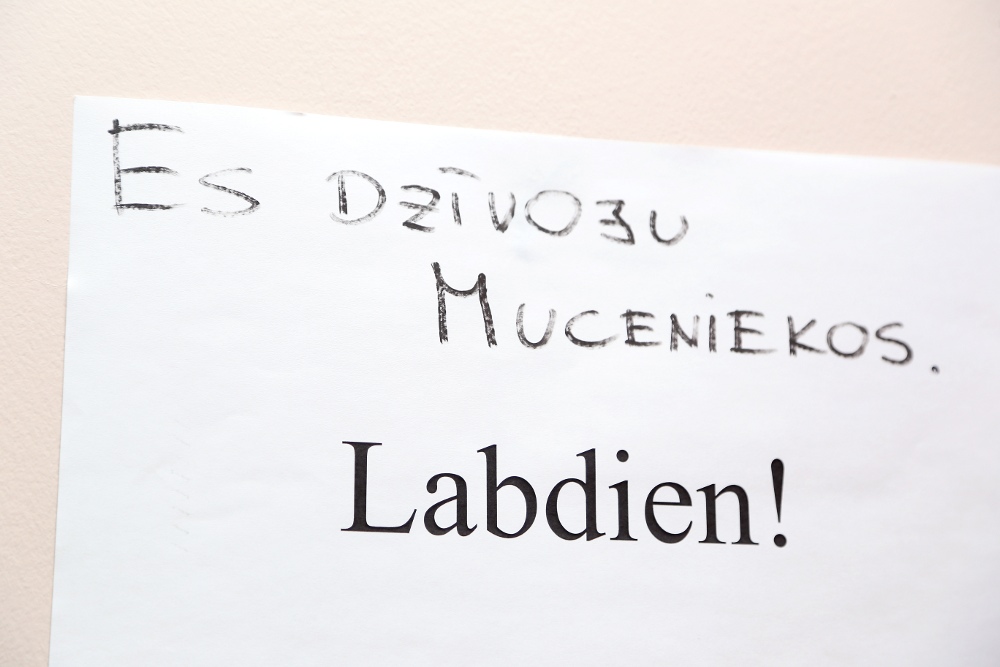 Es DZĪVOJU
MUCENIEKOS.
Labdien!